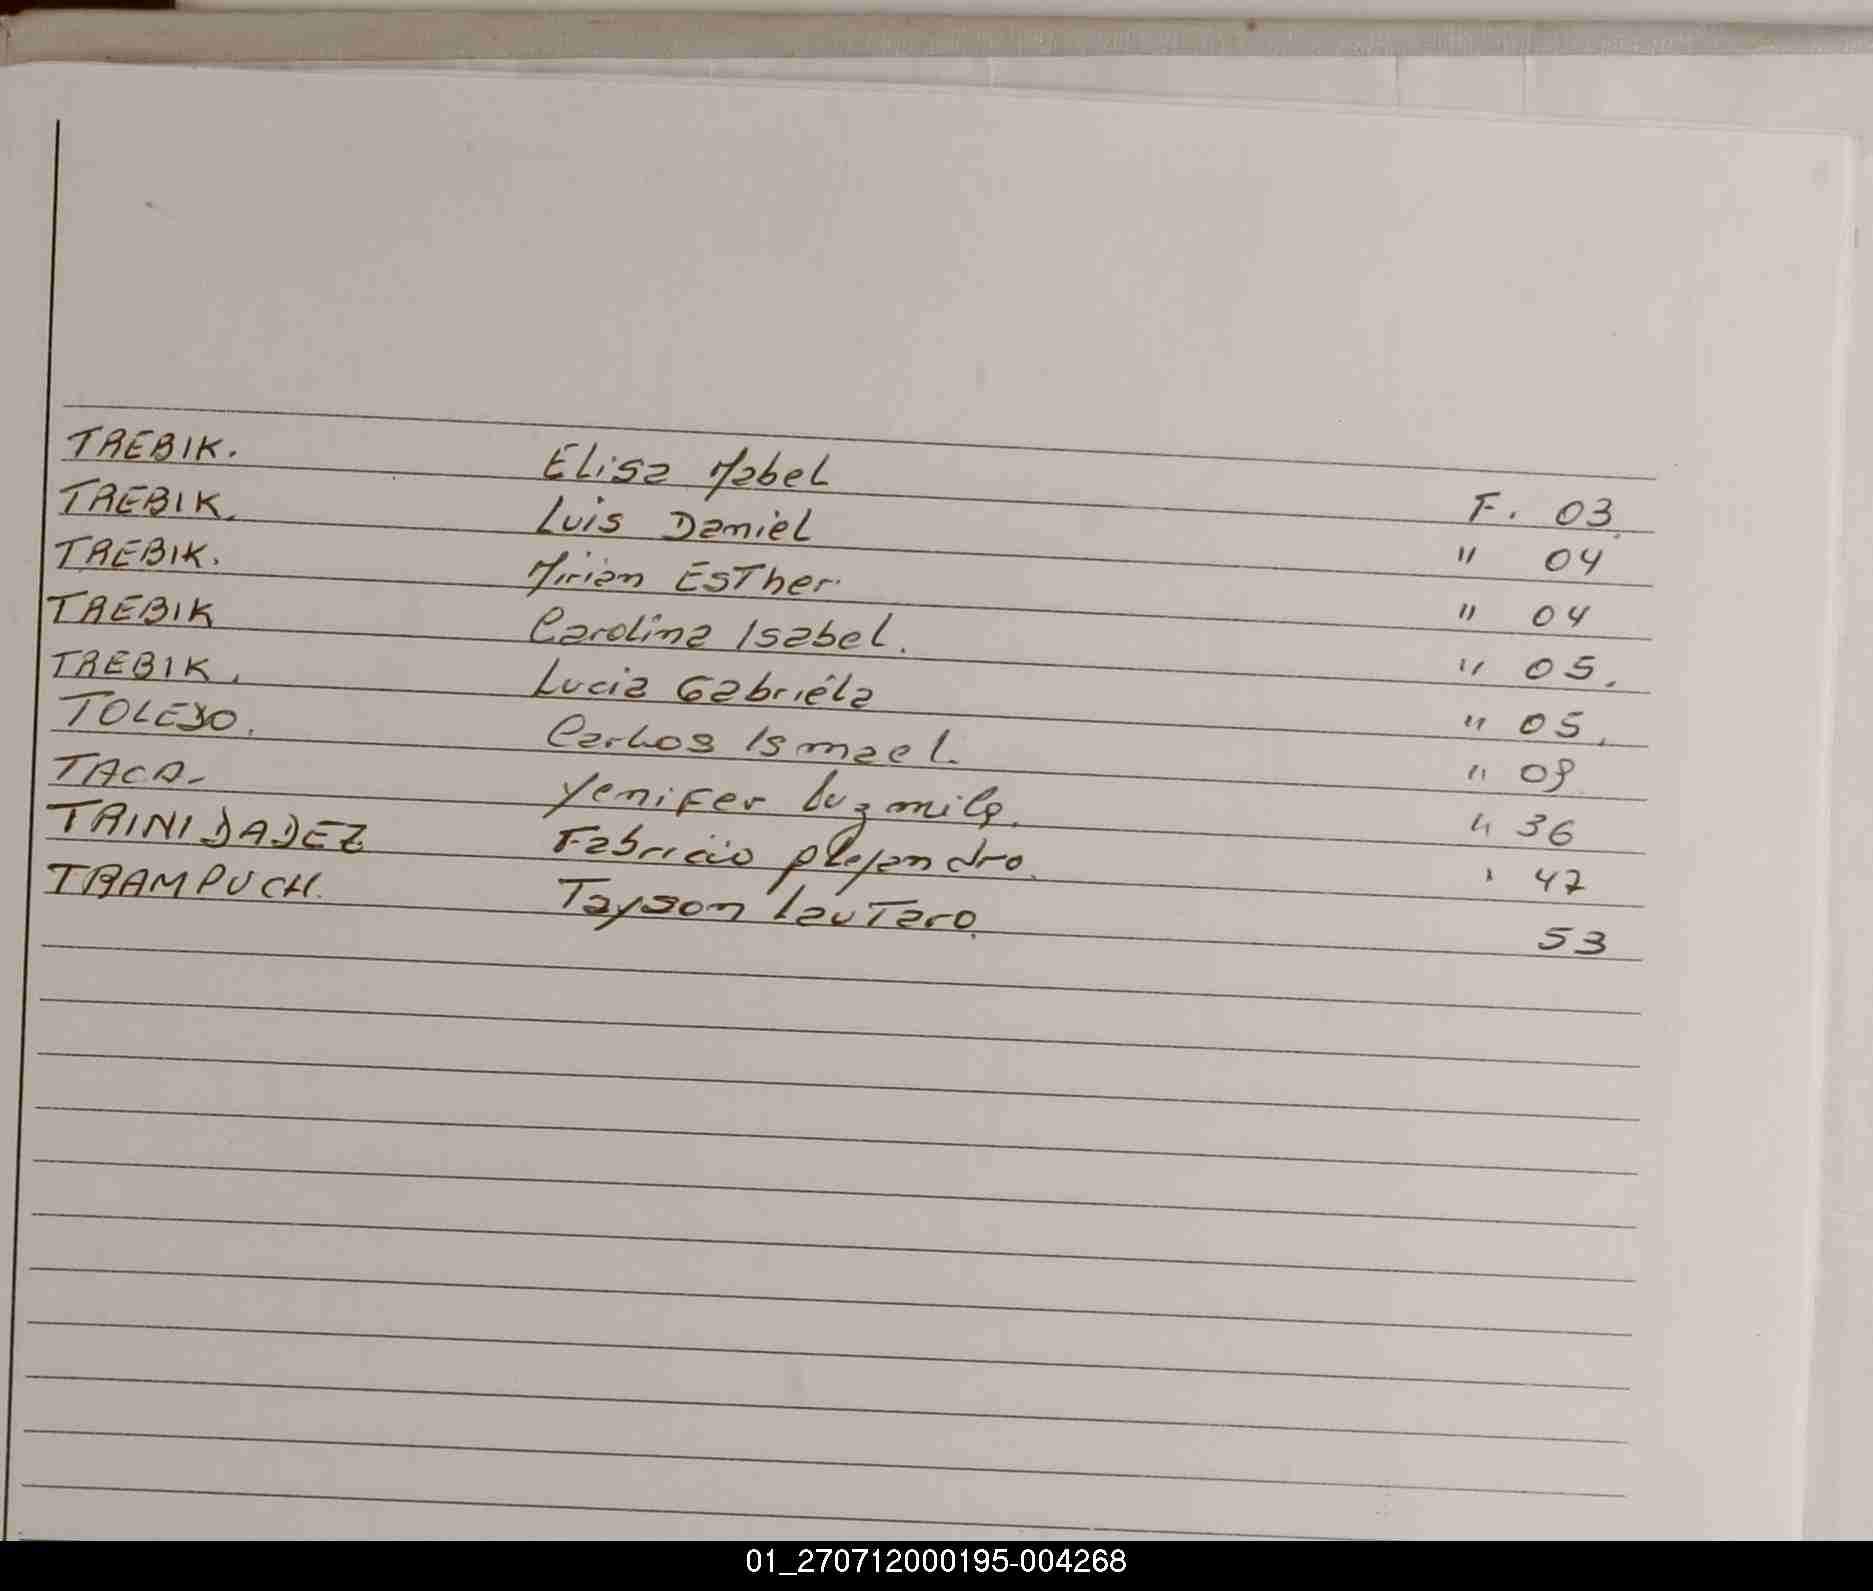 TREBIK. Elisa Mabel F. 03
TREBIK. Luis Daniel " 04
TREBIK. Mirian EsTher " 04
TREBIK Carolina Isabel. " 05.
TREBIK. Lucia Gabriela " 05.
TOLEDO. Carlos Ismael. " 09
TACA- Yenifer Luzmila. " 36
TRINIDADEZ Fabricio Alejandro. " 47
TRAMPUCH. Tayson LauTaro. 53
01_270712000195-004268